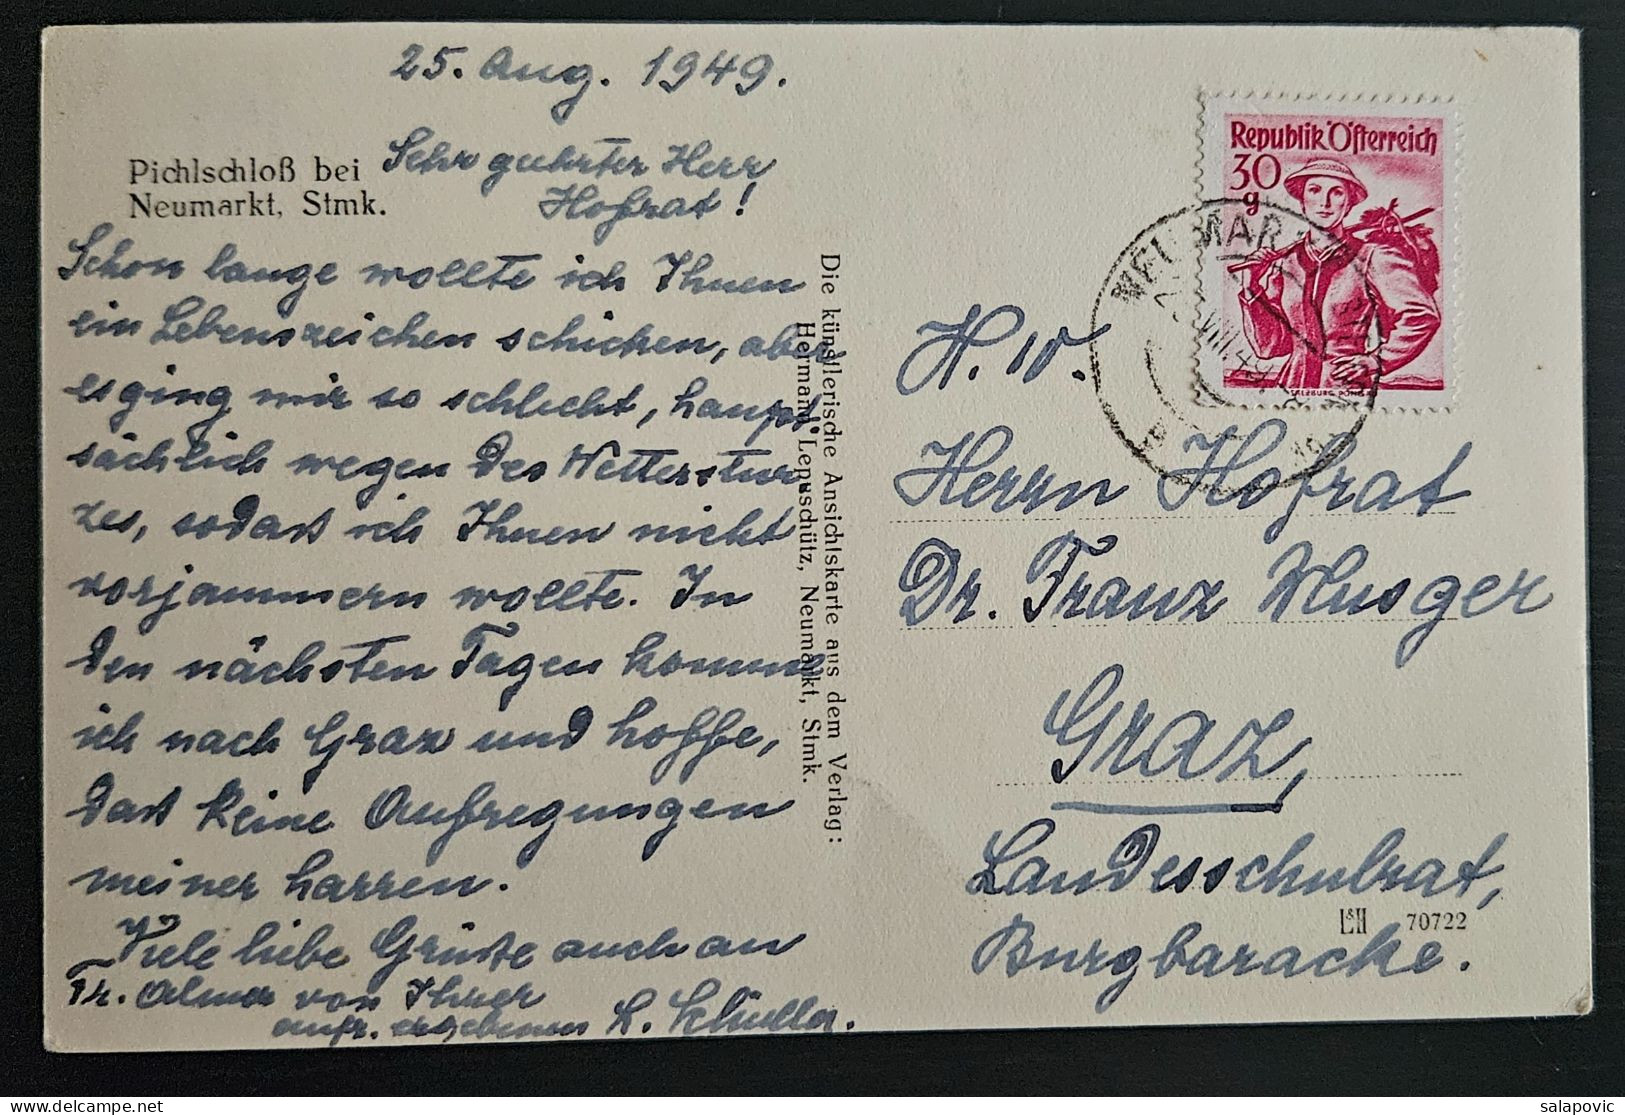 25. Aug. 1949.
Pichlschloß bei
Neumarkt, Stmk.
Sehr geehrter Herr
Hofrat!
Schon lange wollte ich Ihnen
ein Lebenszeichen schicken, aber
es ging mir so schlecht, haupt-
sächlich wegen des Wetterstur-
zes, sodaß ich Ihnen nicht
vorjammern wollte. In
den nächsten Tagen komme
ich nach Graz und hoffe,
daß keine Aufregungen
meiner harren.
Viele liebe Grüße auch an
Fr. Alma von Ihrer
aufr. ergebenen L. Schuller.
Die künstlerische Ansichtskarte aus dem Verlag:
Hermann Lepuschütz, Neumarkt, Stmk.
Republik Österreich
30
g
SALZBURG PONGAU
NEUMARKT
VIII.49
H. W.
Herrn Hofrat
Dr. Franz Musger
Graz,
Landesschulrat,
L&H 70722
Burgbaracke.
salapovic